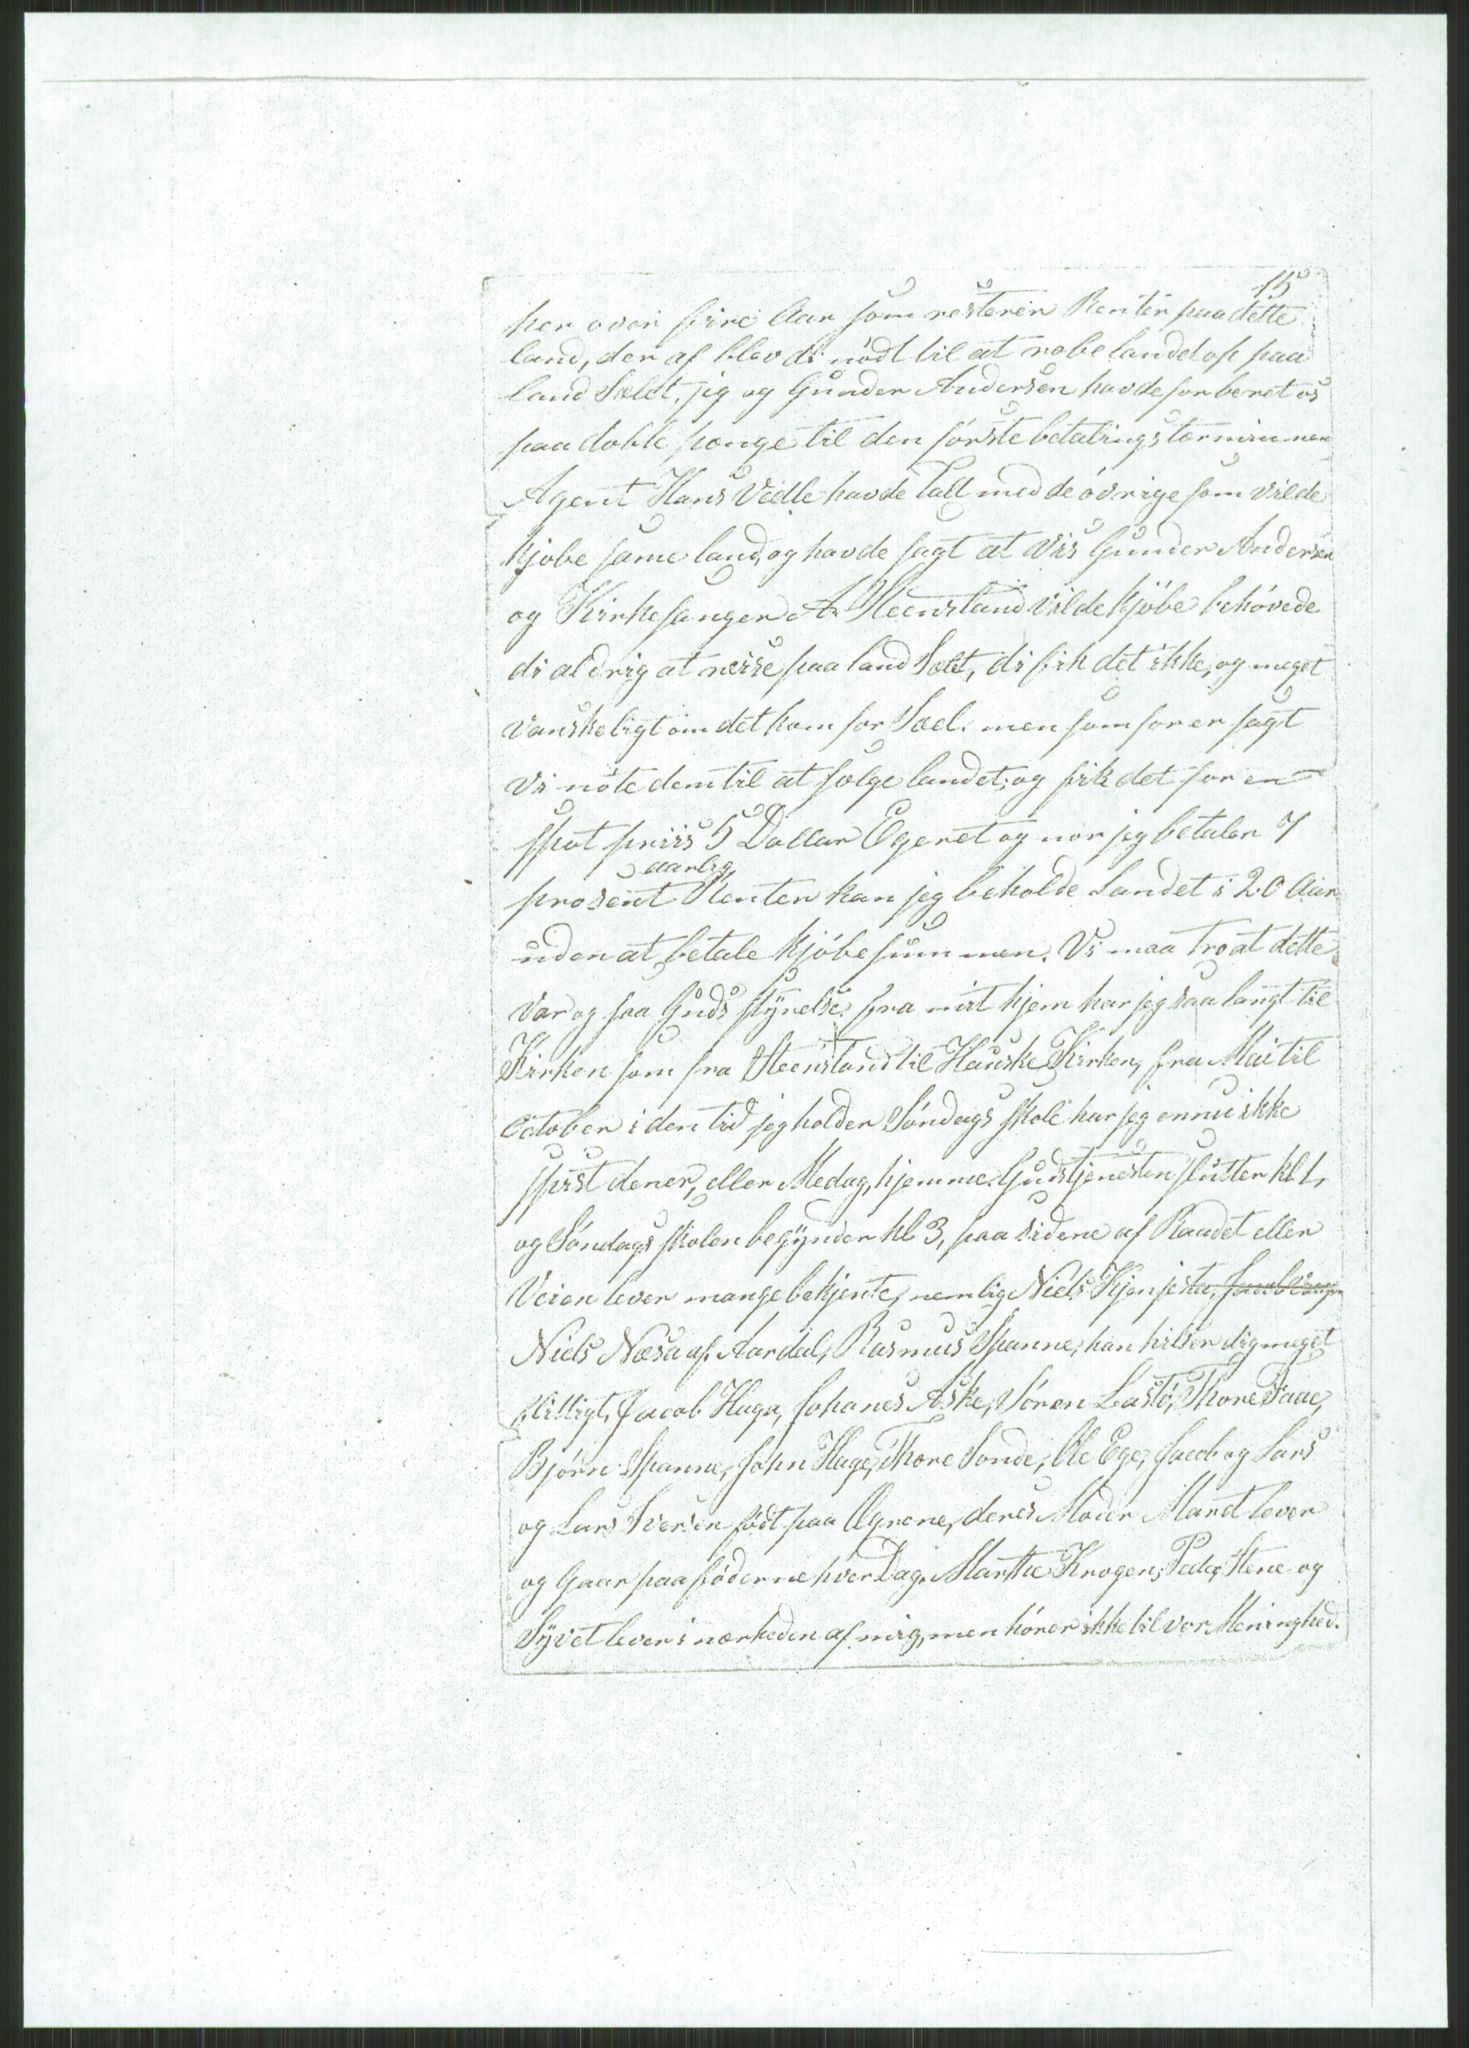 15
her over fire Aar som resterer Renter paa dette
land, der af blev di nödt til at robe landet op paa
land Sælet, jeg og Gunder Andersen havde forberet os
paa doble penge til den förste betalings terminnen
Agent Hans Vedle havde Talt med de övrige som vilde
kjöbe same land, og havde sagt at vis Gunder Andersen
og Kirkesanger A. Steensland vilde kjöbe behövede
di aldrig at reise paa land Sælet, di fik det ikke, og meget
vanskeligt om det kom for Sæl. men som för er sagt
vi nöte dem til at sælge landet, og fik det for en
spot priis 5 Dollar Egeret og nor jeg betaler 7
aarlig
prosent Renter kan jeg beholde Landet i 20 Aar
uden at betale kjöbesummen. Vi maa tro at dette
var og saa Guds styrelse. fra mit hjem har jeg saa langt til
Kirken som fra Steensland til Hauske Kirken, fra Mai til
October i den tid jeg holder Söndags skole har jeg ennu ikke
spist dener, eller Medag, hjemme. Gudstjenesten slutter kl 1,
og Söndags skolen begynder kl 3, paa sidene af Raadet eller
Veien lever mange bekjente, nemlig Niels
Niels Næsa af Aardal, Rasmus Spanne, han hilser dig meget
flittigt, Jacob Haga, Johanes Aske, Sören Lastö, Thore Faae,
Björn Spanne, John Hage, Thore Sonde, Ole Ege, Jacob og Lars
og Lars Iversen födt paa Ogrene, deres Moder Maret lever
og Gaar paa föderne hver Dag. Marthe Krogen, Peder Stene og
Syvet lever i nærheden af mig, men hörer ikke til vor Meninghed.